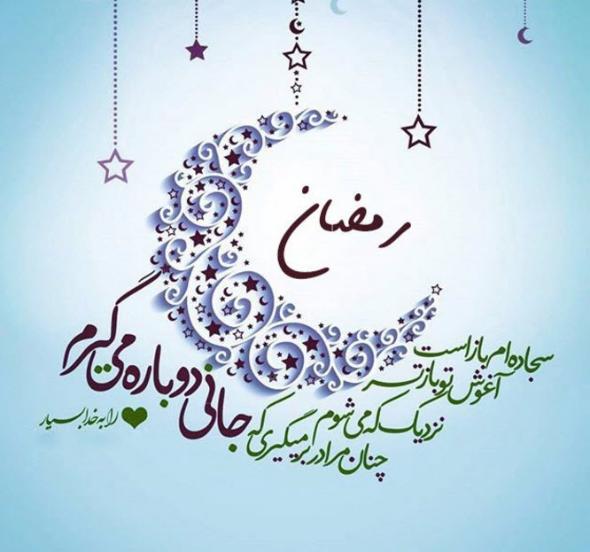 رمضان
سجاده ام باز است
آغوش تو بازتر
نزدیک که می شوم
چنان مرا در بر میگیری که
جانی دوباره می گیرم
را به خدا بسپار